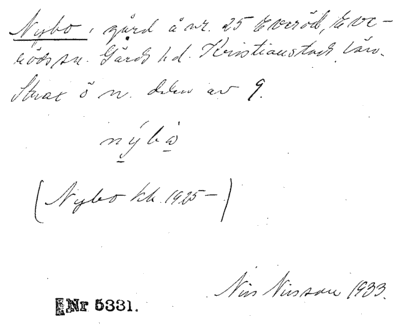 Nybo, gård å nr. 25 Everöd, Eve-
röds sn. Gärds hd. Kristianstads län.
Strax ö n. delen av 9.
nýbo
(Nybo kk. 1925–)
Nils Nilsson 1933.
Nr 5331.